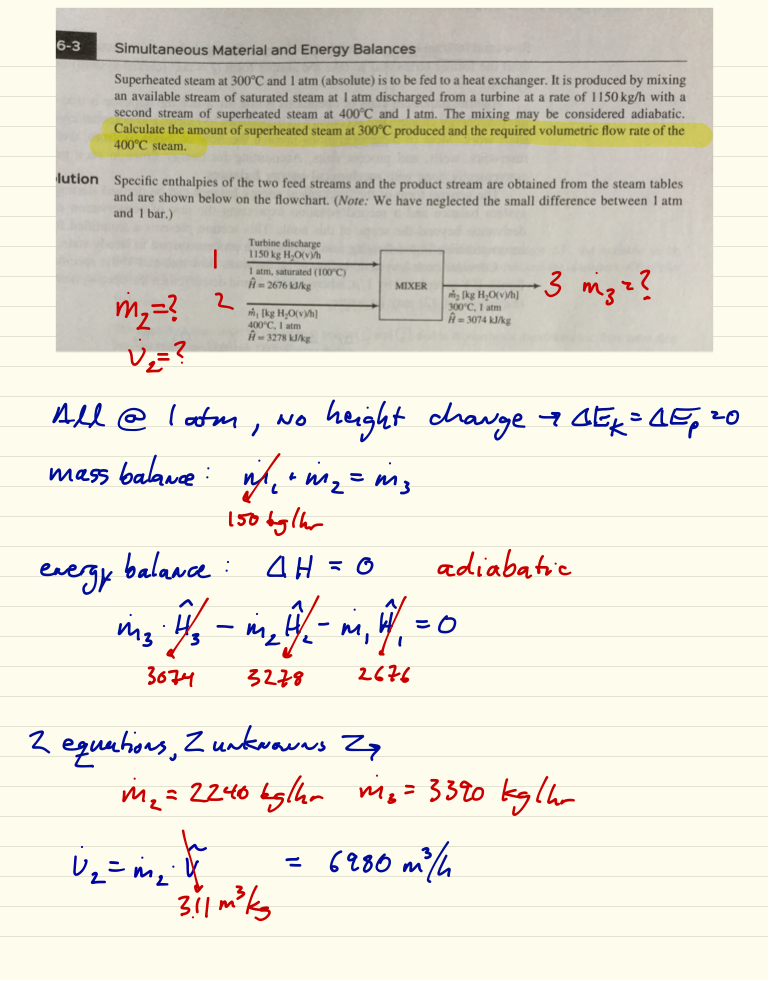 6-3 Simultaneous Material and Energy Balances
Superheated steam at 300°C and 1 atm (absolute) is to be fed to a heat exchanger. It is produced by mixing
an available stream of saturated steam at 1 atm discharged from a turbine at a rate of 1150 kg/h with a
second stream of superheated steam at 400°C and 1 atm. The mixing may be considered adiabatic.
Calculate the amount of superheated steam at 300°C produced and the required volumetric flow rate of the
400°C steam.
lution Specific enthalpies of the two feed streams and the product stream are obtained from the steam tables
and are shown below on the flowchart. (Note: We have neglected the small difference between 1 atm
and 1 bar.)
Turbine discharge
1150 kg H₂O(v)/h
1
1 atm, saturated (100°C)
Ĥ = 2676 kJ/kg
MIXER
3 ṁ₃ = ?
ṁ₂ [kg H₂O(v)/h]
300°C, 1 atm
Ĥ = 3074 kJ/kg
ṁ₂ = ? 2
ṁ₁ [kg H₂O(v)/h]
400°C, 1 atm
Ĥ = 3278 kJ/kg
V̇₂ = ?
All @ 1 atm, no height change → ΔE_K = ΔE_p = 0
mass balance: ṁ₁ + ṁ₂ = ṁ₃
1150 kg/hr
energy balance: ΔH = 0 adiabatic
ṁ₃ · Ĥ₃ − ṁ₂Ĥ₂ − ṁ₁Ĥ₁ = 0
3074 3278 2676
2 equations, 2 unknowns →
ṁ₂ = 2240 kg/hr ṁ₃ = 3390 kg/hr
V̇₂ = ṁ₂ · Ṽ = 6980 m³/h
3.11 m³/kg